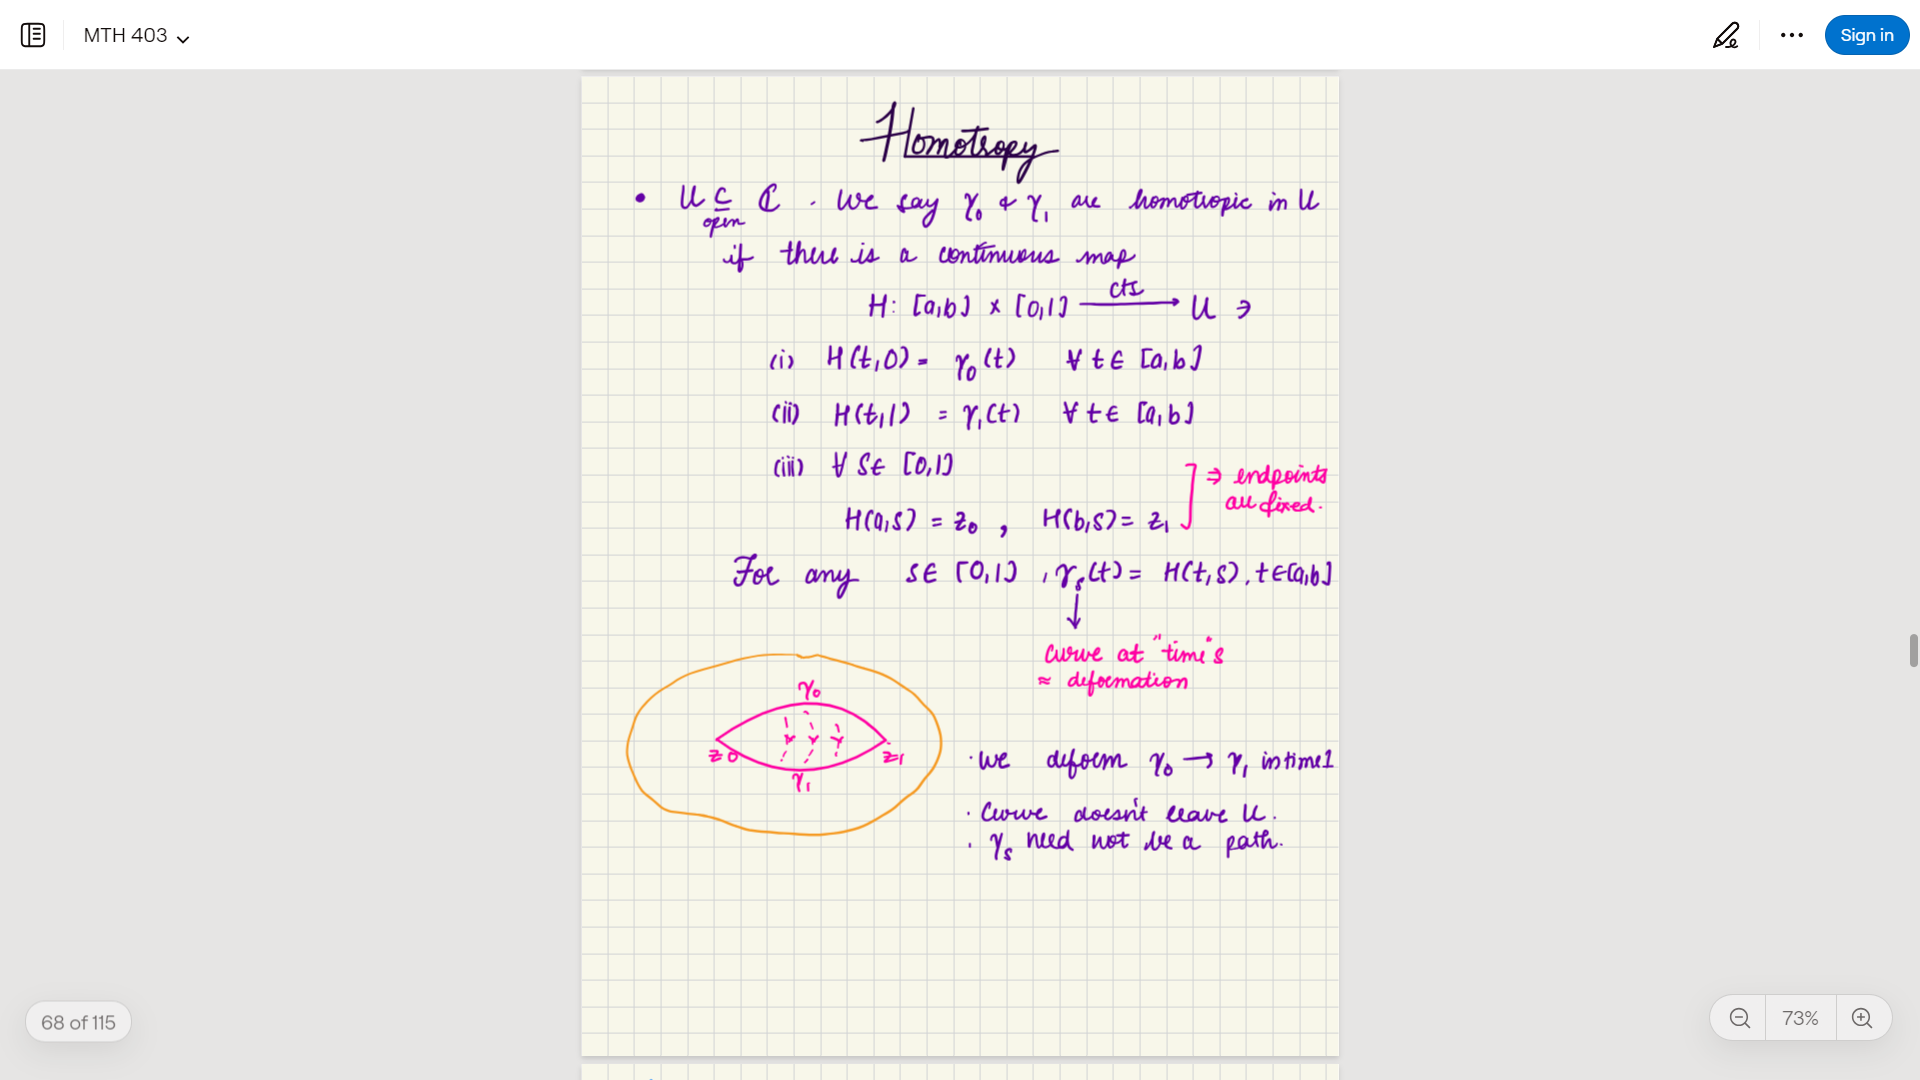 MTH 403
Sign in
Homotropy
• U ⊆ ℂ . We say γ₀ & γ₁ are homotropic in U
open
if there is a continuous map
H: [a,b] × [0,1] → U ∋
cts
(i) H(t,0) = γ₀(t) ∀ t ∈ [a,b]
(ii) H(t,1) = γ₁(t) ∀ t ∈ [a,b]
(iii) ∀ s ∈ [0,1]
H(a,s) = z₀ , H(b,s) = z₁
⇒ endpoints
are fixed.
For any s ∈ [0,1] , γₛ(t) = H(t,s), t∈[a,b]
↓
Curve at "time" s
≈ deformation
γ₀
z₀
z₁
γ₁
· We deform γ₀ → γ₁ in time 1
· Curve doesn't leave U.
· γₛ need not be a path.
68 of 115
73%